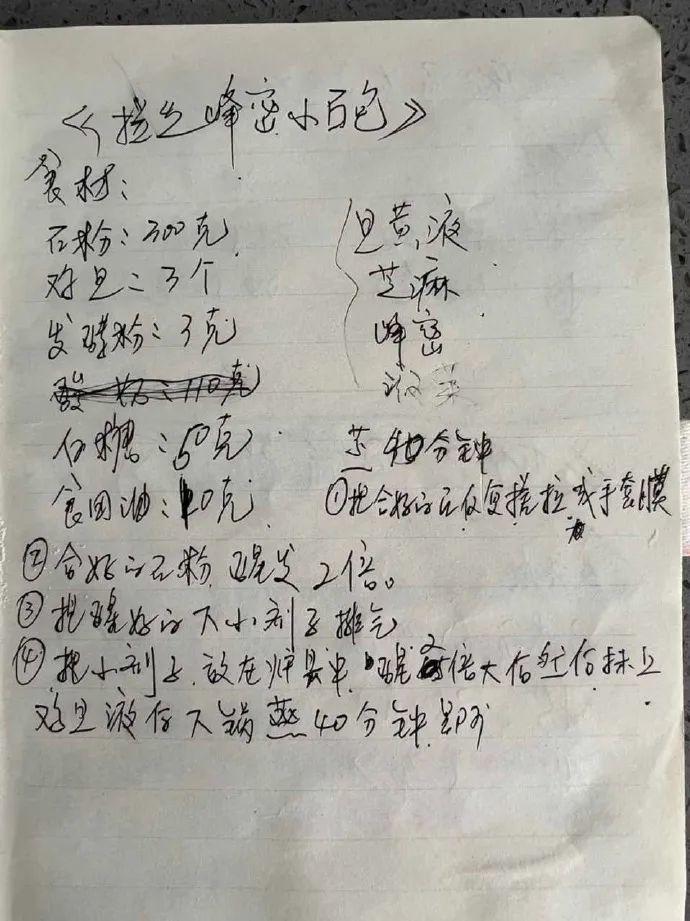 《拉丝峰密小面包》
食材:
面粉:300克
鸡旦:3个
发酵粉:3克
酸奶:110克
白糖:50克
食用油:10克
旦黄液
芝麻
峰密
蒸40分钟
①把合好的面反复搓拉成手套膜
②合好的面粉醒发2倍。
③把醒好的下小剂子排气
④把小剂子放在 中,醒发2倍大 抹上
鸡旦液 下锅蒸40分钟即可